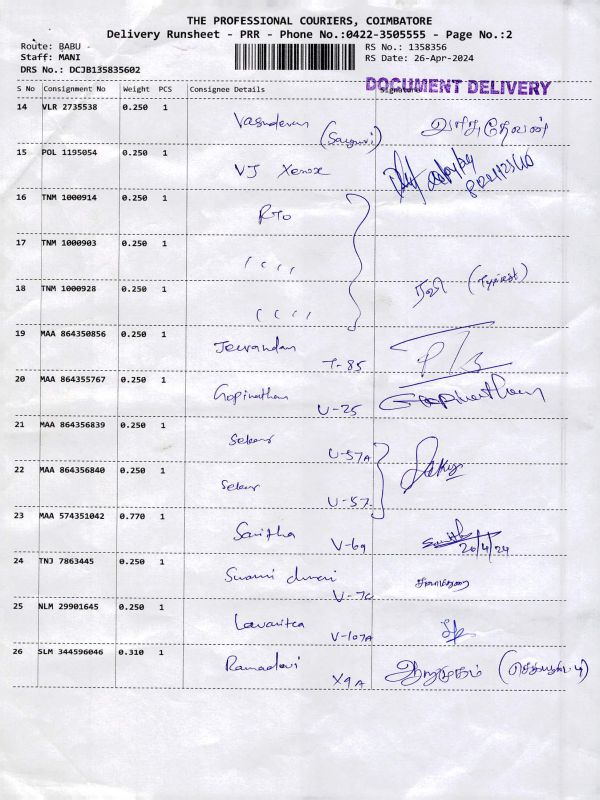 THE PROFESSIONAL COURIERS, COIMBATORE
Delivery Runsheet - PRR - Phone No.:0422-3505555 - Page No.:2
Route: BABU
Staff: MANI
DRS No.: DCJB135835602
RS No.: 1358356
RS Date: 26-Apr-2024
DOCUMENT DELIVERY
S No Consignment No Weight PCS Consignee Details Signature
14 VLR 2735538 0.250 1 Vasudevan வாசுதேவன்
15 POL 1195054 0.250 1 VJ Xerox
16 TNM 1000914 0.250 1 RTO
17 TNM 1000903 0.250 1 ((((
18 TNM 1000928 0.250 1 (((( ரவி (Typist)
19 MAA 864350856 0.250 1 Jeevandan T-85
20 MAA 864355767 0.250 1 Gopinathan U-25 Gopinathan
21 MAA 864356839 0.250 1 Sekar U-57A
22 MAA 864356840 0.250 1 Sekar U-57
23 MAA 574351042 0.770 1 Saritha V-69 26/4/24
24 TNJ 7863445 0.250 1 Swami durai V-7C
25 NLM 29901645 0.250 1 V-107A
26 SLM 344596046 0.310 1 Ramadevi X9A ஆறுமுகம்